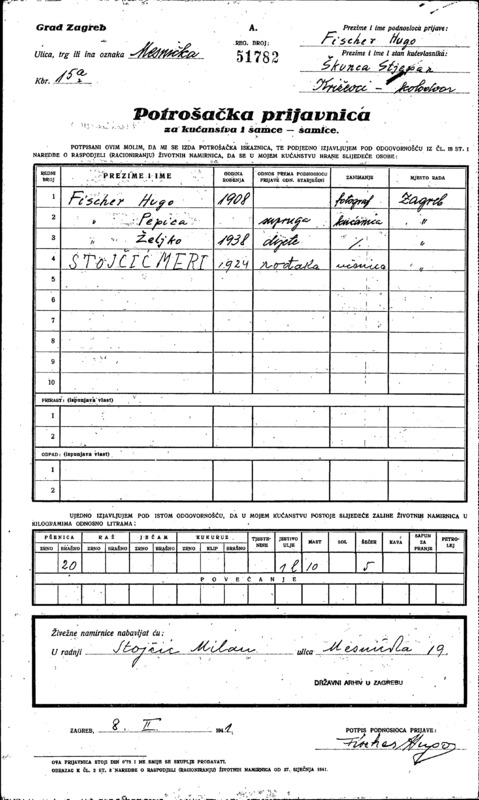 Grad Zagreb
A.
Prezime i ime podnosioca prijave:
Fischer Hugo
Ulica, trg ili ina oznaka Mesnička
REG. BROJ:
51782
Prezime i ime i stan kućevlasnika:
Škunca Stjepan
Kbr. 15a
Križevci - kolodvor
Potrošačka prijavnica
za kućanstva i samce — samice.
POTPISANI OVIM MOLIM, DA MI SE IZDA POTROŠAČKA ISKAZNICA, TE PODJEDNO IZJAVLJUJEM POD ODGOVORNOŠĆU IZ ČL. 18 ST. 1
NAREDBE O RASPODJELI (RACIONIRANJU) ŽIVOTNIH NAMIRNICA, DA SE U MOJEM KUĆANSTVU HRANE SLIJEDEĆE OSOBE:
REDNI BROJ PREZIME I IME GODINA ROĐENJA ODNOS PREMA PODNOSIOCU PRIJAVE ODN. STARJEŠINI ZANIMANJE MJESTO RADA
1 Fischer Hugo 1908 fotograf Zagreb
2 " Pepica supruga kućanica "
3 " Željko 1938 dijete /. "
4 STOJČIĆ MERI 1924 rođaka učenica "
5
6
7
8
9
10
PRIRAST: (ispunjava vlast)
1
2
ODPAD: (ispunjava vlast)
1
2
UJEDNO IZJAVLJUJEM POD ISTOM ODGOVORNOŠĆU, DA U MOJEM KUĆANSTVU POSTOJE SLIJEDEĆE ZALIHE ŽIVOTNIH NAMIRNICA U
KILOGRAMIMA ODNOSNO LITRAMA:
PŠENICA RAŽ JEČAM KUKURUZ TJESTENINE JESTIVO ULJE MAST SOL ŠEĆER KAVA SAPUN ZA PRANJE PETROLEJ
ZRNO BRAŠNO ZRNO BRAŠNO ZRNO BRAŠNO ZRNO KLIP BRAŠNO
20 1 l 10 5
POVEĆANJE
Živežne namirnice nabavljat ću:
U radnji Stojčić Milan ulica Mesnička 19.
DRŽAVNI ARHIV U ZAGREBU
ZAGREB, 8. II 1941.
POTPIS PODNOSIOCA PRIJAVE:
Fischer Hugo
OVA PRIJAVNICA STOJI DIN 0'75 I NE SMIJE SE SKUPLJE PRODAVATI.
OBRAZAC K ČL. 2 ST. 2 NAREDBE O RASPODJELI (RACIONIRANJU) ŽIVOTNIH NAMIRNICA OD 27. SIJEČNJA 1941.